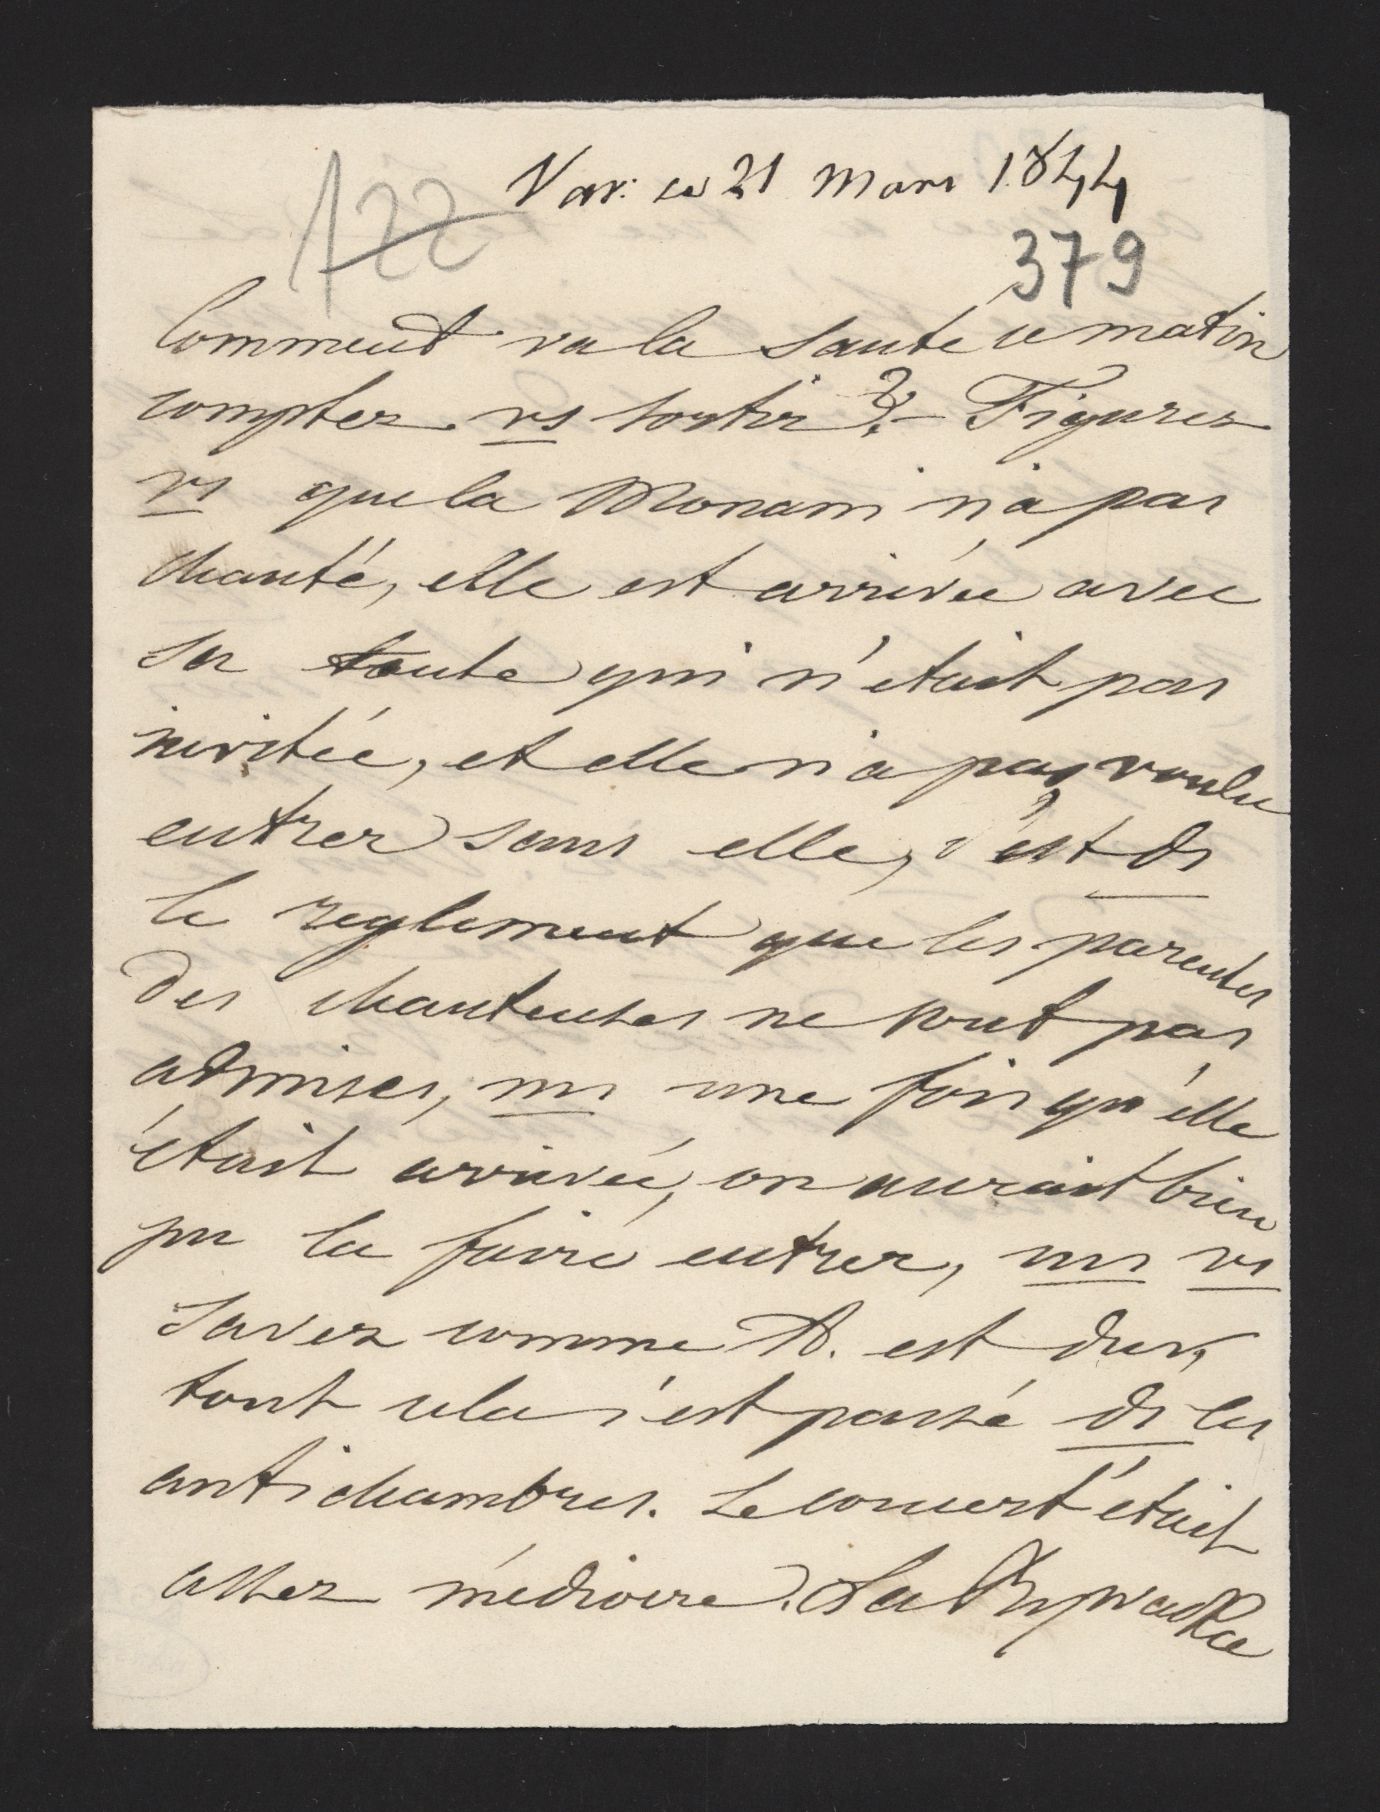 Var: ce 21 Mars 1844
122
379
Comment va la santé ce matin
comptez vs sortir ?- Figurez
vs que la Monami n'a pas
chanté, elle est arrivée avec
sa tante qui n'etait pas
invitée, et elle n'a pas voulu
entrer sans elle, c'est ds
le reglement que les parentes
des chanteuses ne sont pas
admises, ms une fois qu'elle
était arrivée, on aurait bien
pu la faire entrer, ms vs
savez comme R. est dur,
tout cela s'est passé ds les
antichambres. Le concert était
assez médiocre. La